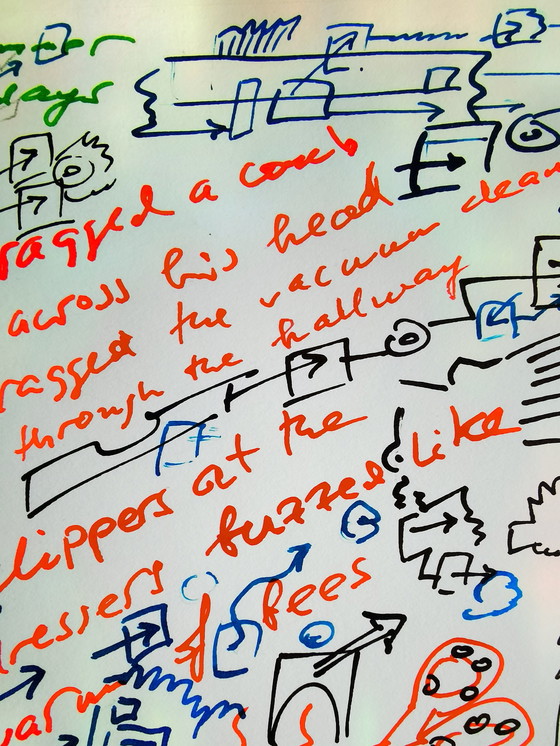 ays
ragged a comb
across his head
ragged the vacuum clean
through the hallway
lippers at the
ressers fuzzed like
f bees